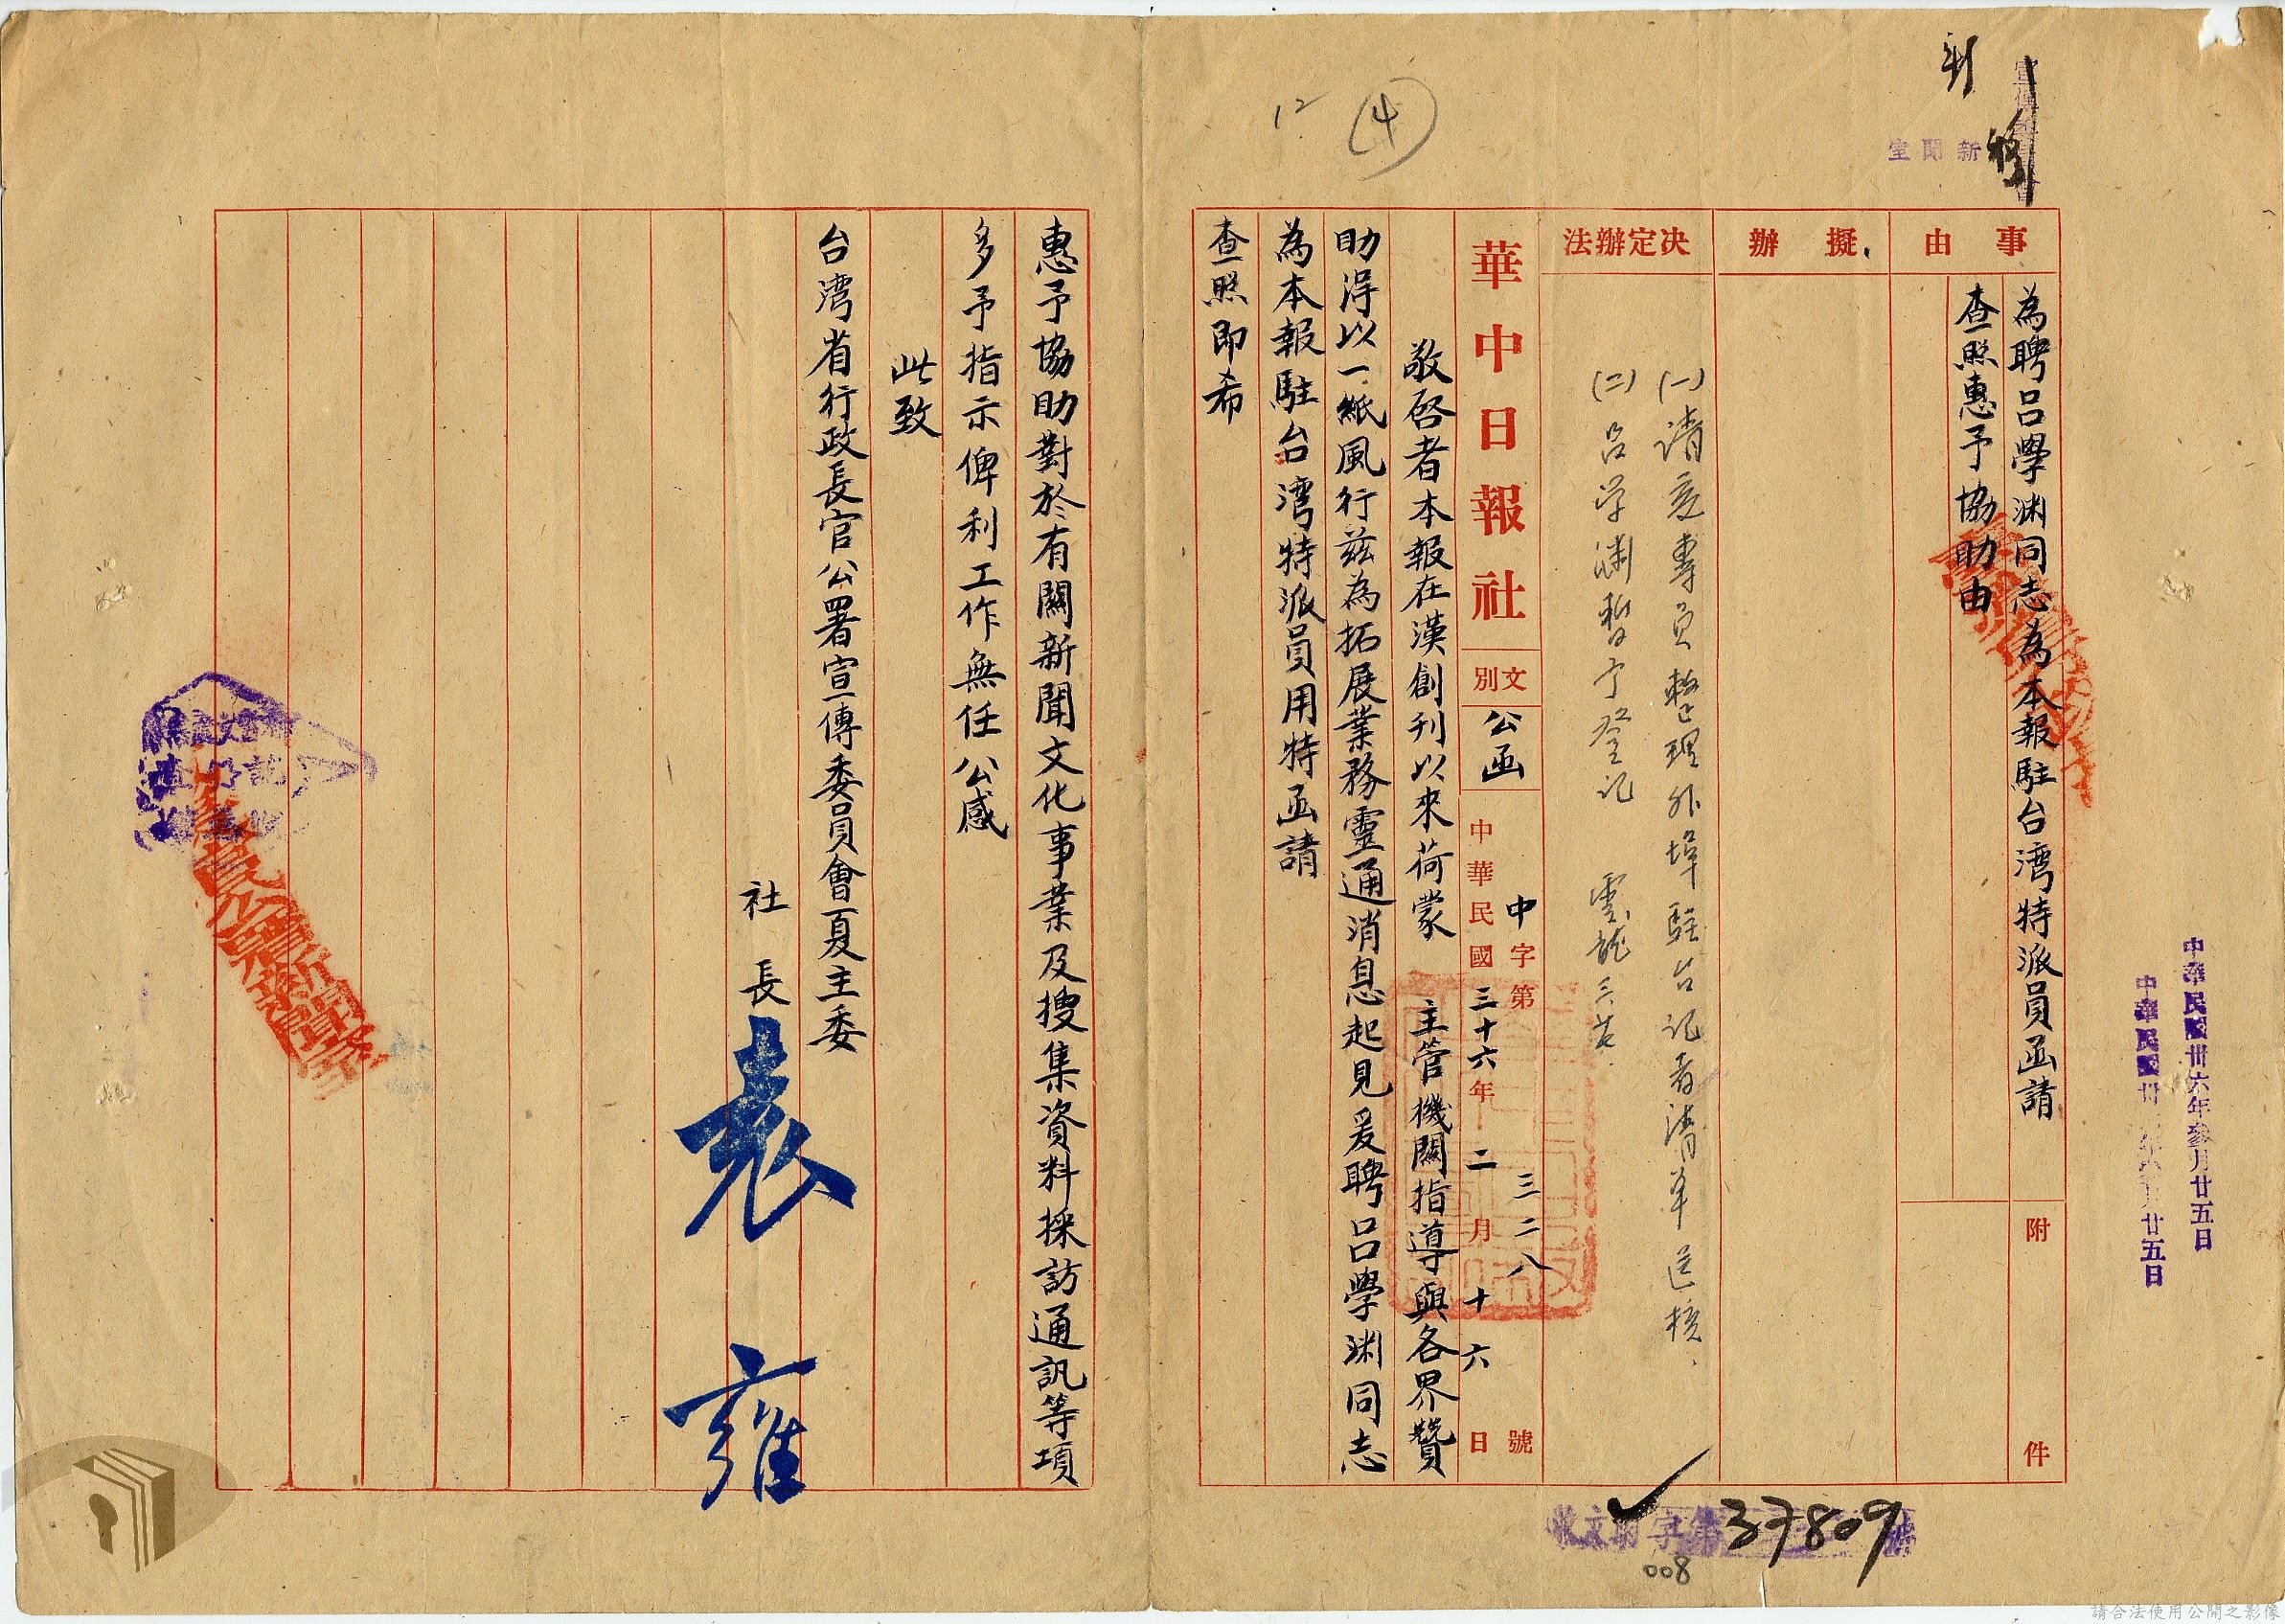 新聞室
事由
為聘吕學渊同志為本報駐台湾特派員函請
查照惠予協助由
附件
擬辦
決定辦法
(一)請 專員整理外埠駐台记者清单送核.
(二)吕学渊暫予登记
華中日報社
文別
公函
中字第三二八號
中華民國三十六年二月十六日
敬啓者本報在漢創刊以來荷蒙 主管機關指導與各界贊
助得以一紙風行茲為拓展業務靈通消息起見爰聘吕學渊同志
為本報駐台湾特派員用特函請
查照即希
惠予協助對於有關新聞文化事業及搜集資料採訪通訊等項
多予指示俾利工作無任公感
此致
台湾省行政長官公署宣傳委員會夏主委
社長袁雍
中華民國卅六年叁月廿五日
廿五日
12
4
37809
008
請合法使用公開之影像